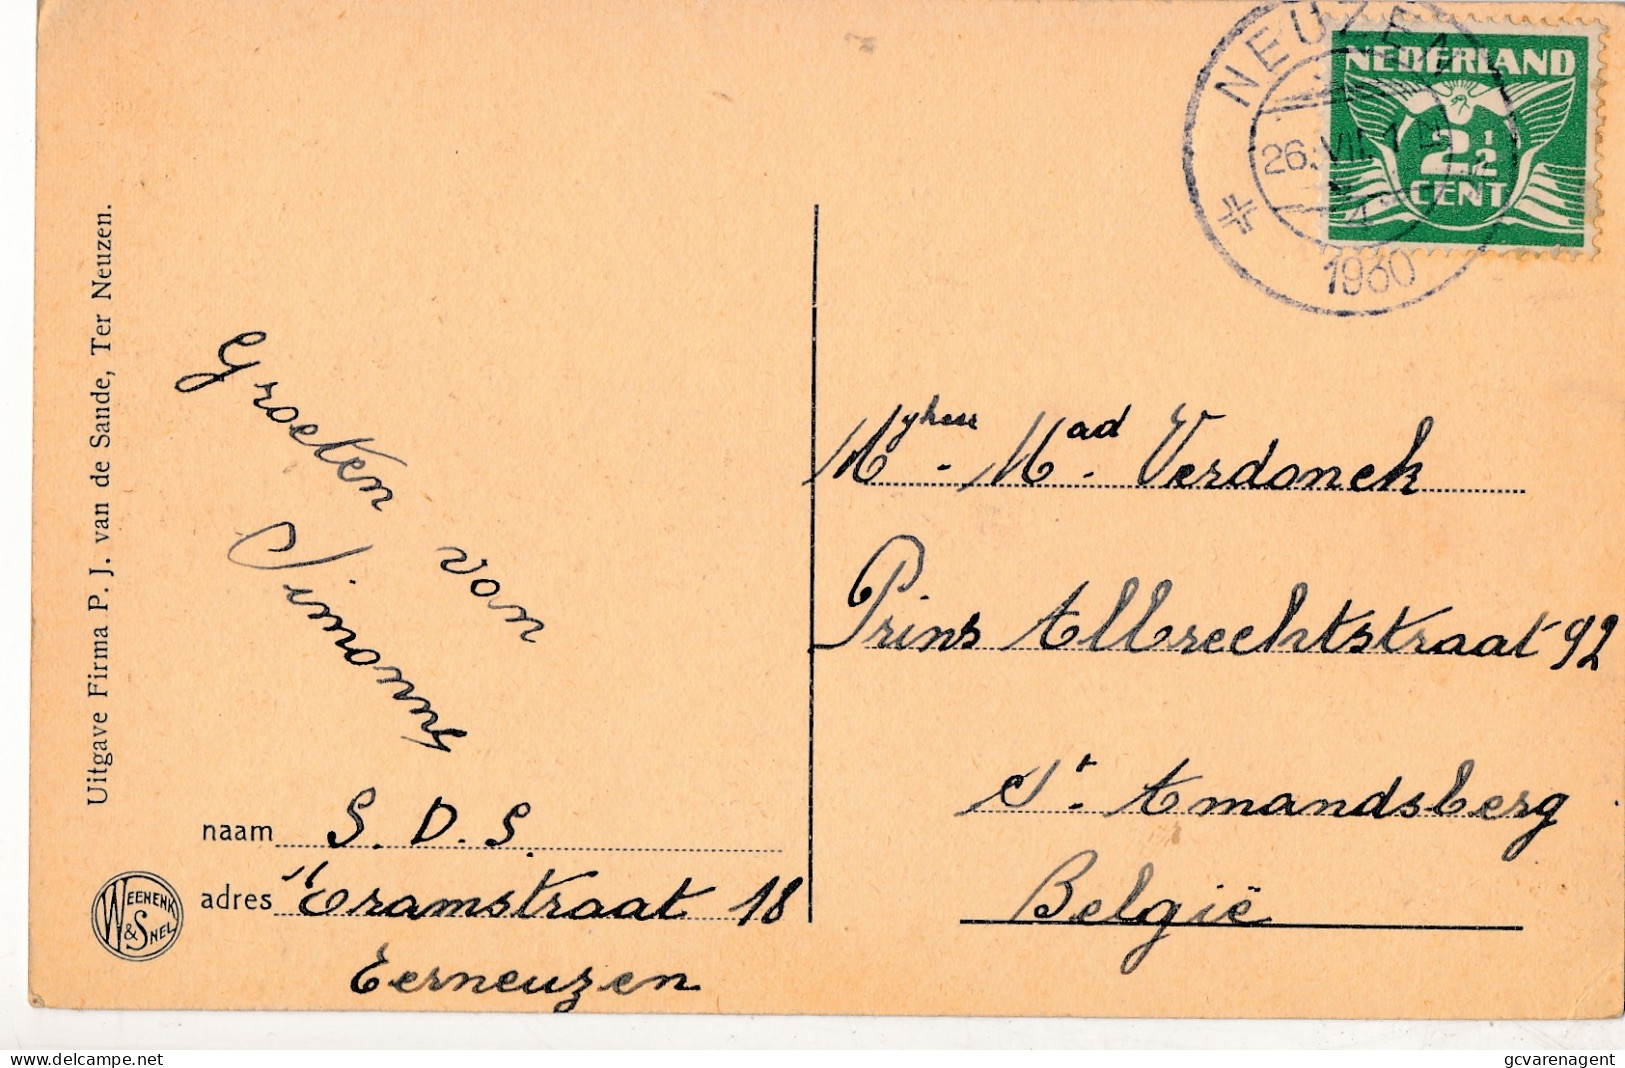 NEUZEN
26.VII
1930
NEDERLAND
2½
CENT
Uitgave Firma P. J. van de Sande, Ter Neuzen.
Groeten van
Simonny
naam S. D. S.
adres Tramstraat 18
Terneuzen
WEENENK
& SNEL
Mynheer - Mad. Verdonck
Prins Albrechtstraat 92
St. Amandsberg
België
gcvarenagent